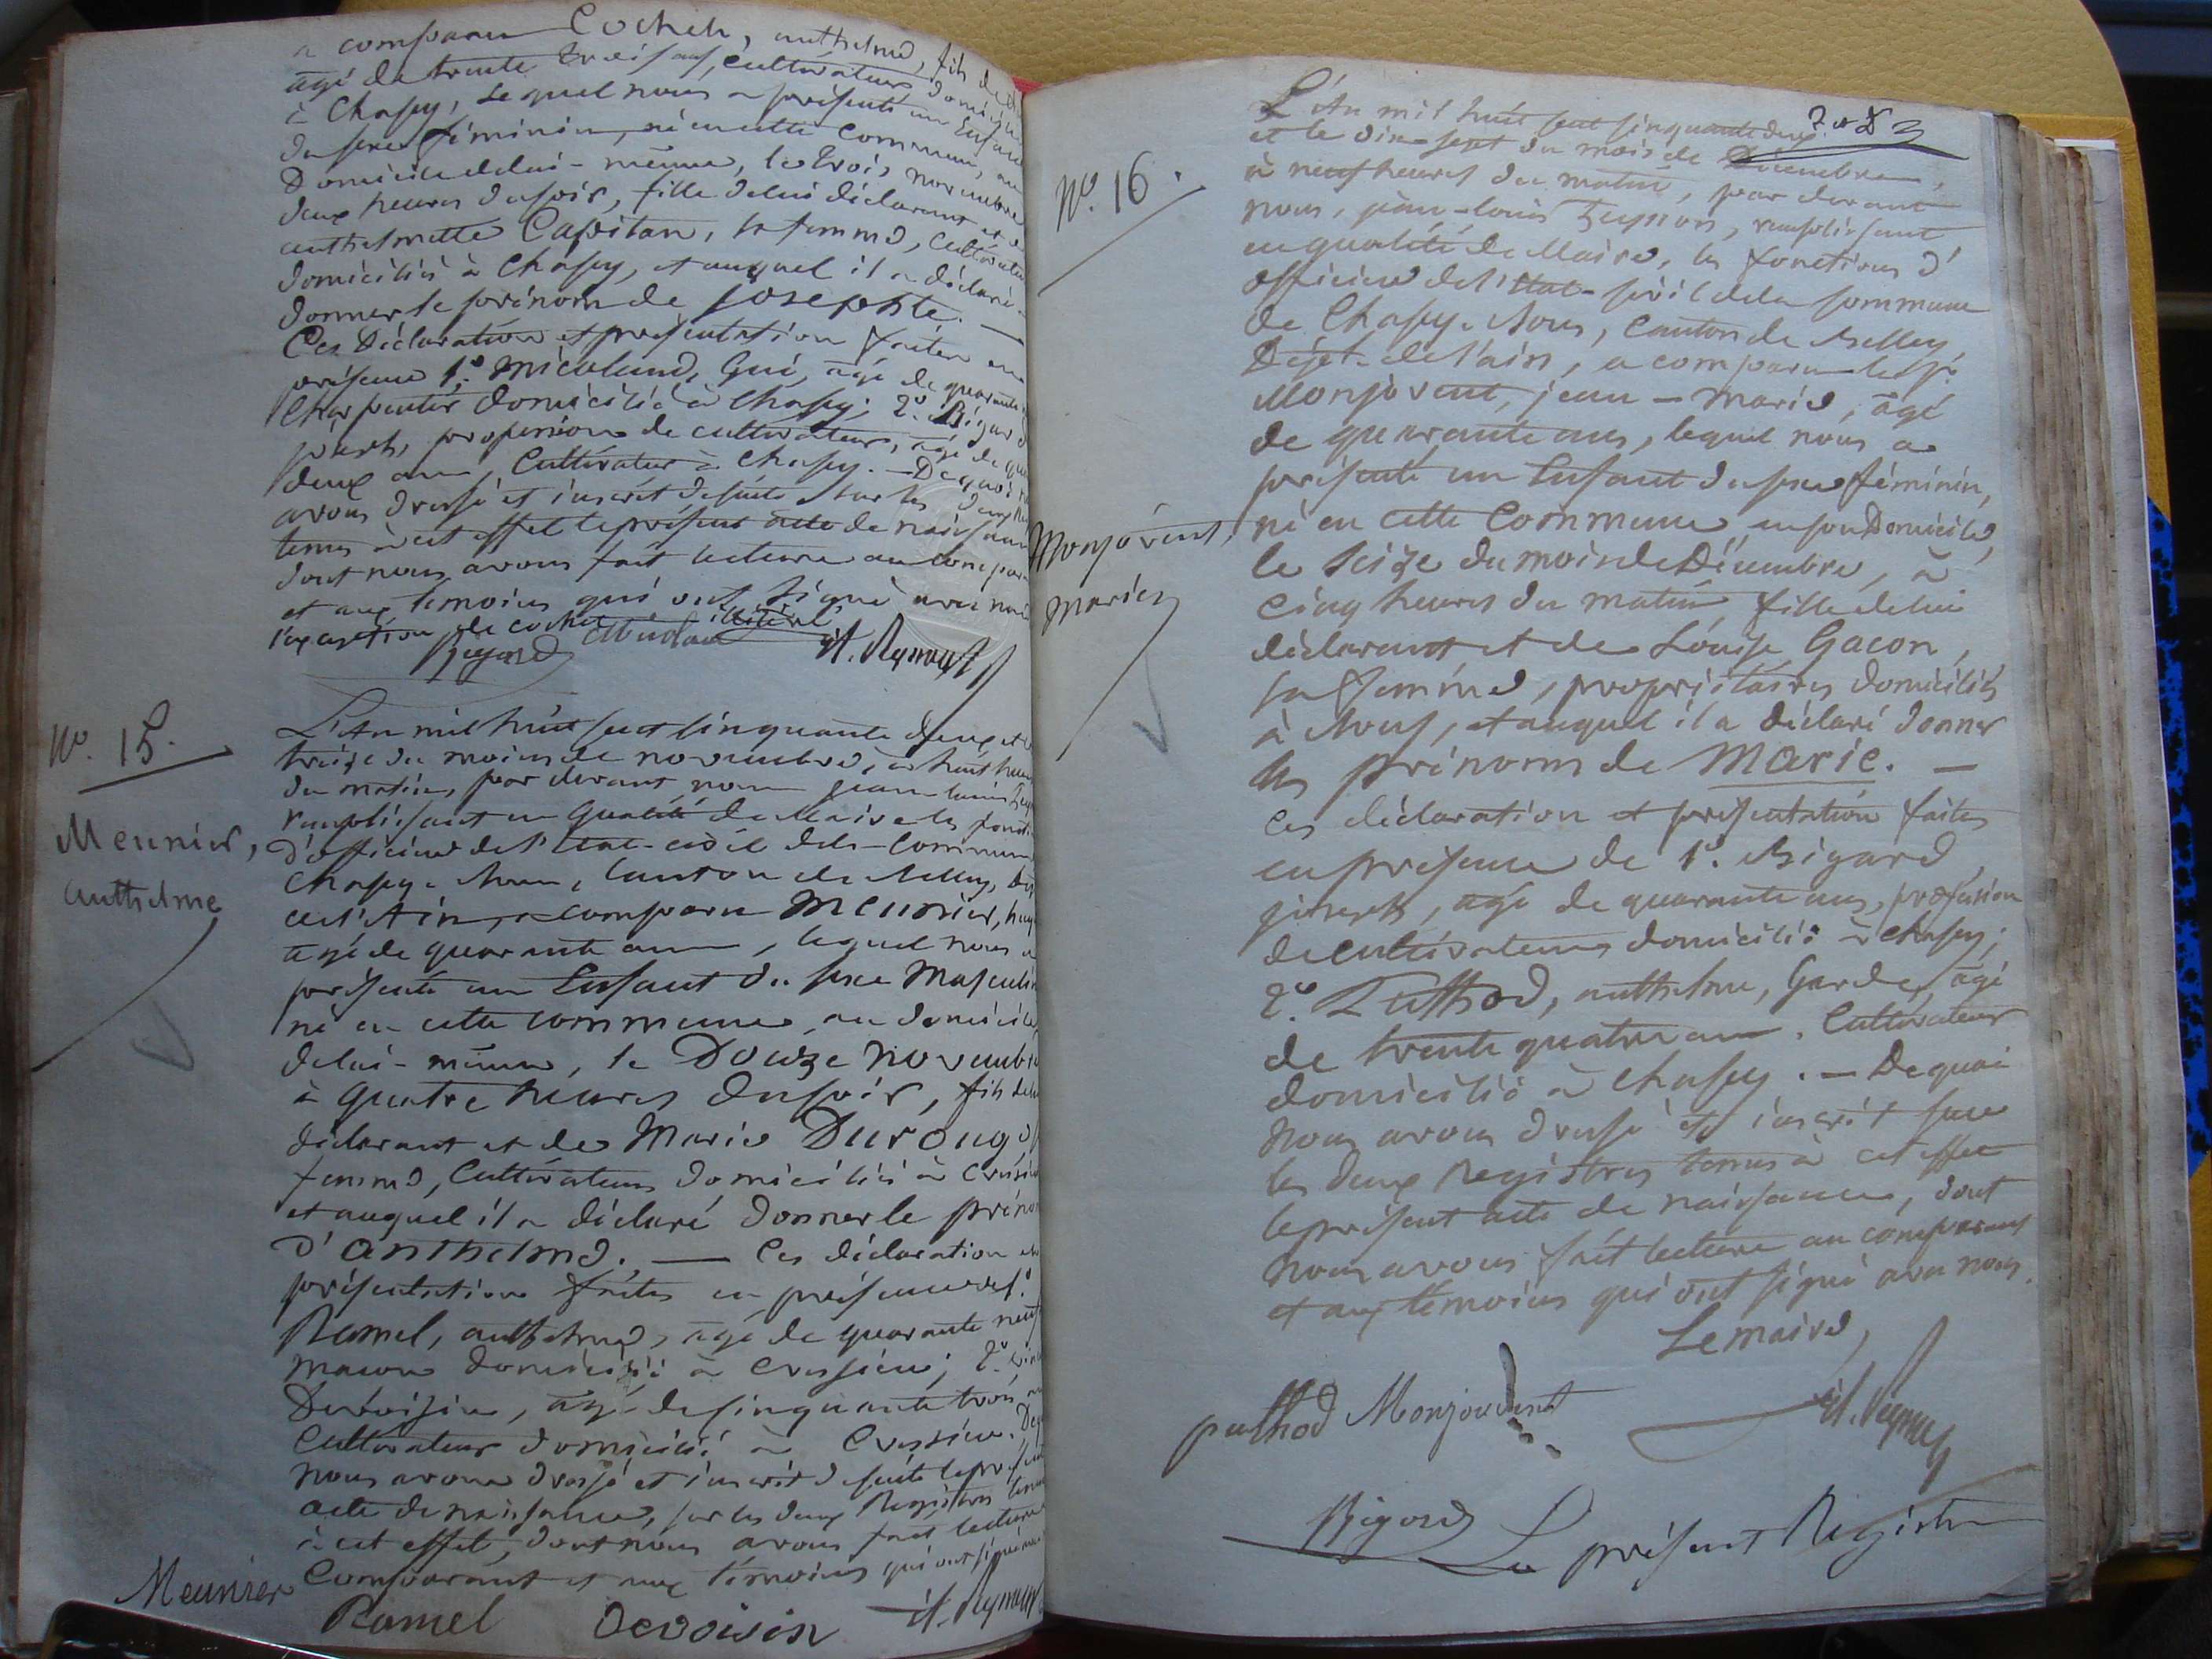 a comparu Cochet, anthelme, fils de
agé de trente trois ans, cultivateur domicilié
à Chasey, lequel nous a présenté un Enfant
du sexe féminin, né en cette Commune, au
Domicile de lui-même, le trois novembre
deux heures du soir, fille de lui déclarant et de
anthelmette Capitan, sa femme, Cultivateurs
domiciliés à Chasey, et auquel il a déclaré
donner le prénom de josephte. —
Ces Déclaration et présentation faites en
présence 1°. Micoland, Gui, agé de quarante
Charpentier domicilié à Chasey; 2°. Bigard
joseph, profession de cultivateur, agé de quarante
deux ans, Cultivateur à Chasey. — De quoi
avons dressé et inscrit de suite sur les deux
tenus à cet effet le présent acte de naissance
dont nous avons fait lecture au comparant
et aux témoins qui ont signé avec nous
l'exception de cochet illitéré
Bigard
N°. 15.
Meunier,
anthelme
L'An mil huit cent cinquante deux et le
treize du mois de novembre, à huit heures
du matin, par devant nous jean louis
remplissant en qualité de Maire les fonctions
d'officier de l'Etat-civil de la Commune
Chasey-Nous, Canton de Belley,
de l'Ain, a comparu Meunier,
agé de quarante ans, lequel nous a
présenté un Enfant du sexe Masculin
né en cette commune, au domicile
de lui-même, le Douze novembre
à quatre heures du soir, fils de lui
déclarant et de Marie
femme, Cultivateurs domiciliés à Cressieu
et auquel il a déclaré donner le prénom
d'anthelme. — Ces déclaration et
présentation faites en présence de 1°.
Ramel, anthelme, agé de quarante neuf
macon domicilié à Cressieu; 2°.
Devoisin, agé de cinquante trois
Cultivateur domicilié à Cressieu. De
nous avons dressé et inscrit de suite le présent
acte de naissance, sur les deux Registres tenus
à cet effet, dont nous avons fait lecture
Comparant et aux témoins qui ont signé
Meunier
Ramel Devoisin
N°. 16.
Monjovent,
Marie
L'An mil huit cent cinquante deux
et le dix-sept du mois de Décembre,
à neuf heures du matin, par devant
nous, jean-louis, remplissant
en qualité de Maire, les fonctions d'
officier de l'Etat-civil de la Commune
de Chasey-Nous, Canton de Belley,
Dépt. de l'ain, a comparu le
Monjovent, jean-marie, agé
de quarante ans, lequel nous a
présenté un Enfant du sexe féminin,
né en cette Commune, en son Domicile,
le Seize du mois de Décembre, à
cinq heures du matin, fille de lui
déclarant et de Louise Gacon,
sa femme, propriétaires domiciliés
à Nous, et auquel il a déclaré donner
les prénoms de Marie. —
Ces déclaration et présentation faites
en présence de 1°. Bigard
joseph, agé de quarante ans, profession
de cultivateur domicilié à Chasey;
2°. anthelme, Garde, agé
de trente quatre ans, Cultivateur
domicilié à Chasey. — De quoi
nous avons dressé et inscrit sur
les deux Registres tenus à cet effet
le présent acte de naissance, dont
nous avons fait lecture au comparant
et aux témoins qui ont signé avec nous.
Le maire,
Monjovent
Bigard
Le présent Registre